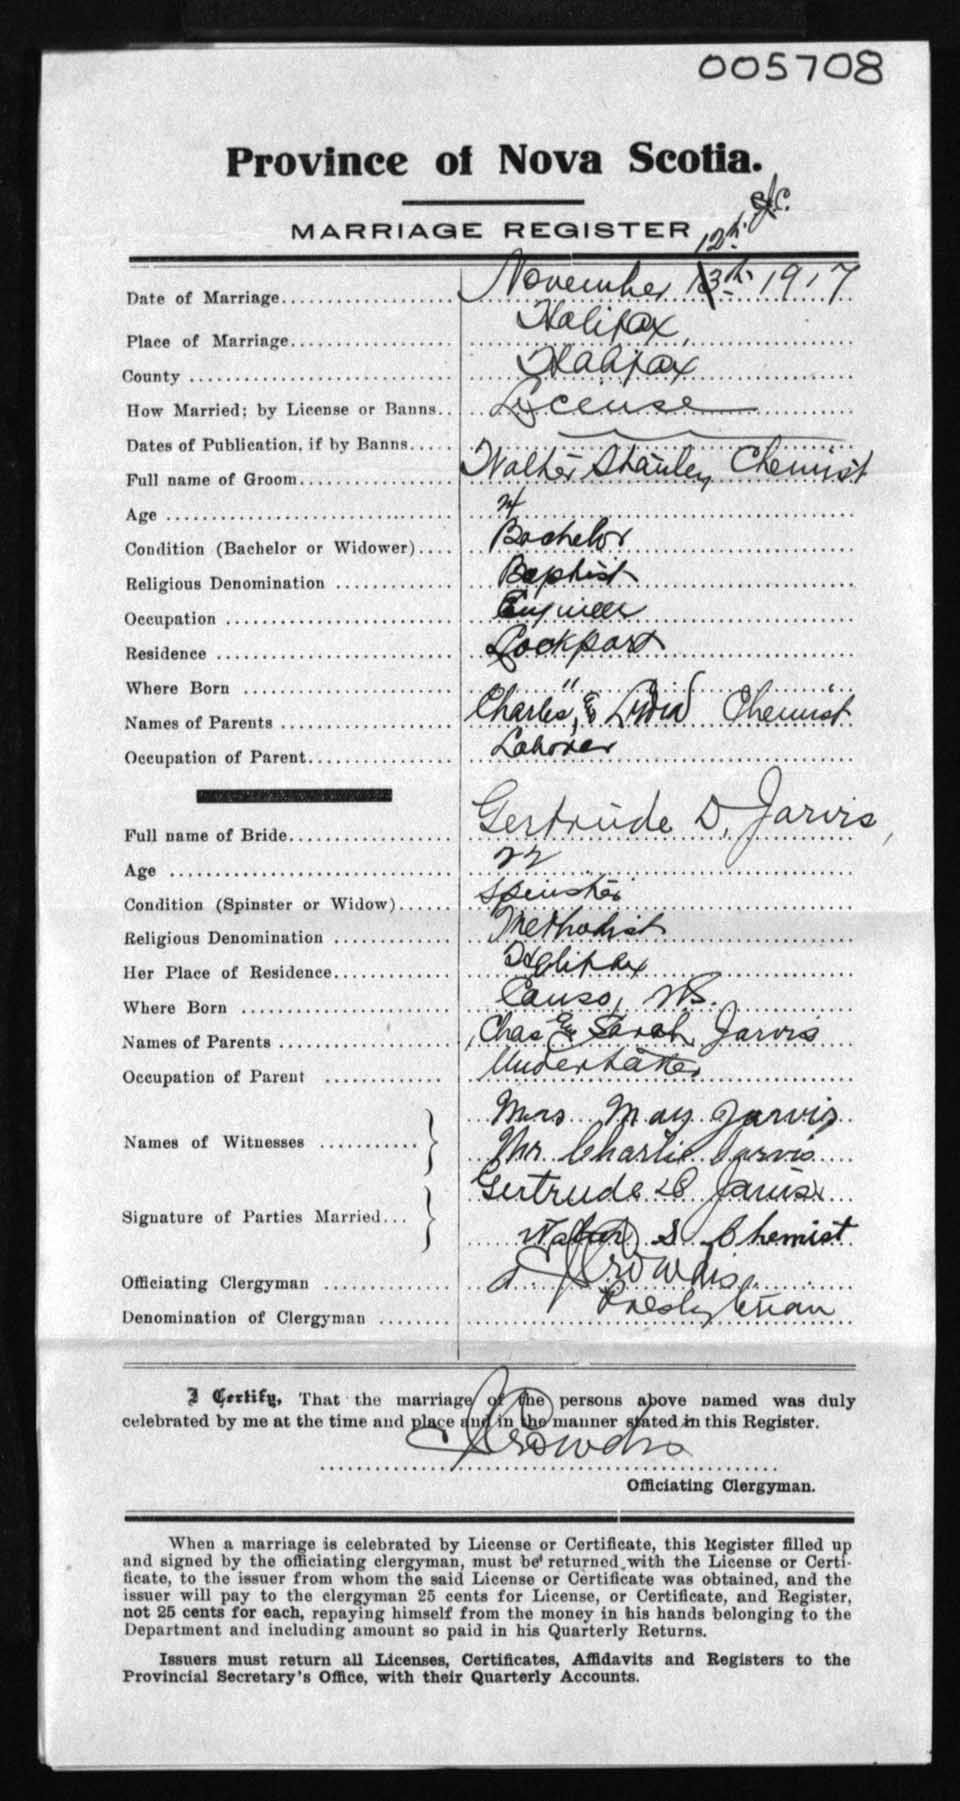 005708
Province of Nova Scotia.
MARRIAGE REGISTER 12th
Date of Marriage November 13th 1917
Place of Marriage Halifax,
County Halifax
How Married; by License or Banns License
Dates of Publication, if by Banns
Full name of Groom Walter Stanley Chemist
Age
Condition (Bachelor or Widower) Bachelor
Religious Denomination Baptist
Occupation Engineer
Residence Lockport
Where Born "
Names of Parents Charles, & Lydia Chemist
Occupation of Parent Laborer
Full name of Bride Gertrude D. Jarvis,
Age 22
Condition (Spinster or Widow) Spinster
Religious Denomination Methodist
Her Place of Residence Halifax
Where Born Canso, NS.
Names of Parents Chas & Sarah Jarvis
Occupation of Parent Undertaker
Names of Witnesses Mrs May Jarvis
Mr Charlie Jarvis
Signature of Parties Married Gertrude D Jarvis
Walter S Chemist
Officiating Clergyman Crowdis
Denomination of Clergyman Presbyterian
I Certify, That the marriage of the persons above named was duly
celebrated by me at the time and place and in the manner stated in this Register.
Crowdis
Officiating Clergyman.
When a marriage is celebrated by License or Certificate, this Register filled up
and signed by the officiating clergyman, must be returned with the License or Certi-
ficate, to the issuer from whom the said License or Certificate was obtained, and the
issuer will pay to the clergyman 25 cents for License, or Certificate, and Register,
not 25 cents for each, repaying himself from the money in his hands belonging to the
Department and including amount so paid in his Quarterly Returns.
Issuers must return all Licenses, Certificates, Affidavits and Registers to the
Provincial Secretary's Office, with their Quarterly Accounts.